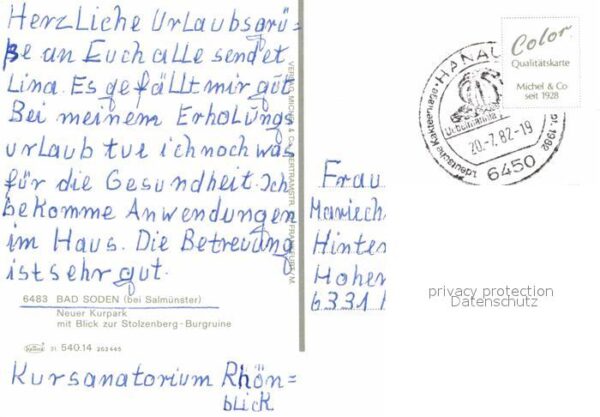 Herzliche Urlaubsgrü=
ße an Euch alle sendet
Lina. Es gefällt mir gut
Bei meinem Erholungs
urlaub tue ich noch was
für die Gesundheit. Ich
bekomme Anwendungen
im Haus. Die Betreuung
ist sehr gut.
6483 BAD SODEN (bei Salmünster)
Neuer Kurpark
mit Blick zur Stolzenberg-Burgruine
31 540.14 263445
Kursanatorium Rhön=
blick
VERLAG MICHEL & CO
FRANKFURT/M
HANAU
20.-7.82-19
6450
Color
Qualitätskarte
Michel & Co
seit 1928
Frau
Mariech
Hinter
Hoher
6331
privacy protection
Datenschutz